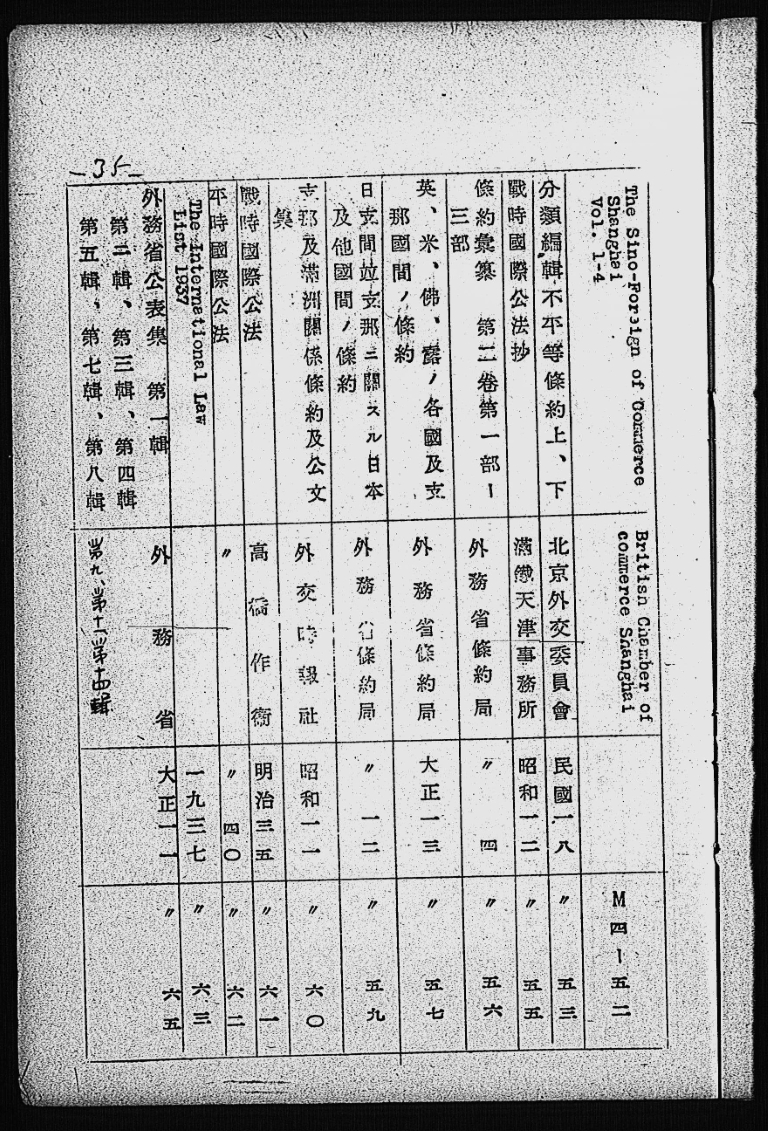 —35—
The Sino-Foreign of Commerce
Shanghai
Vol. 1-4
British Chamber of
commerce Shanghai
M四ー五二
分類編輯不平等條約上、下
北京外交委員會
民國一八
〃 五三
戰時國際公法抄
滿鐵天津事務所
昭和一二
〃 五五
條約彙纂 第二卷第一部ー
三部
外務省條約局
〃 四
〃 五六
英、米、佛、露ノ各國及支
那國間ノ條約
外務省條約局
大正一三
〃 五七
日支間竝支那ニ關スル日本
及他國間ノ條約
外務省條約局
〃 一二
〃 五九
支那及滿洲關係條約及公文
集
外交時報社
昭和一一
〃 六〇
戰時國際公法
高橋作衛
明治三五
〃 六一
平時國際公法
〃
〃 四〇
〃 六二
The International Law
List 1937
一九三七
〃 六三
外務省公表集 第一輯
第二輯、第三輯、第四輯
第五輯、第七輯、第八輯
第九、第十一、第十四輯
外務省
大正一一
〃 六五